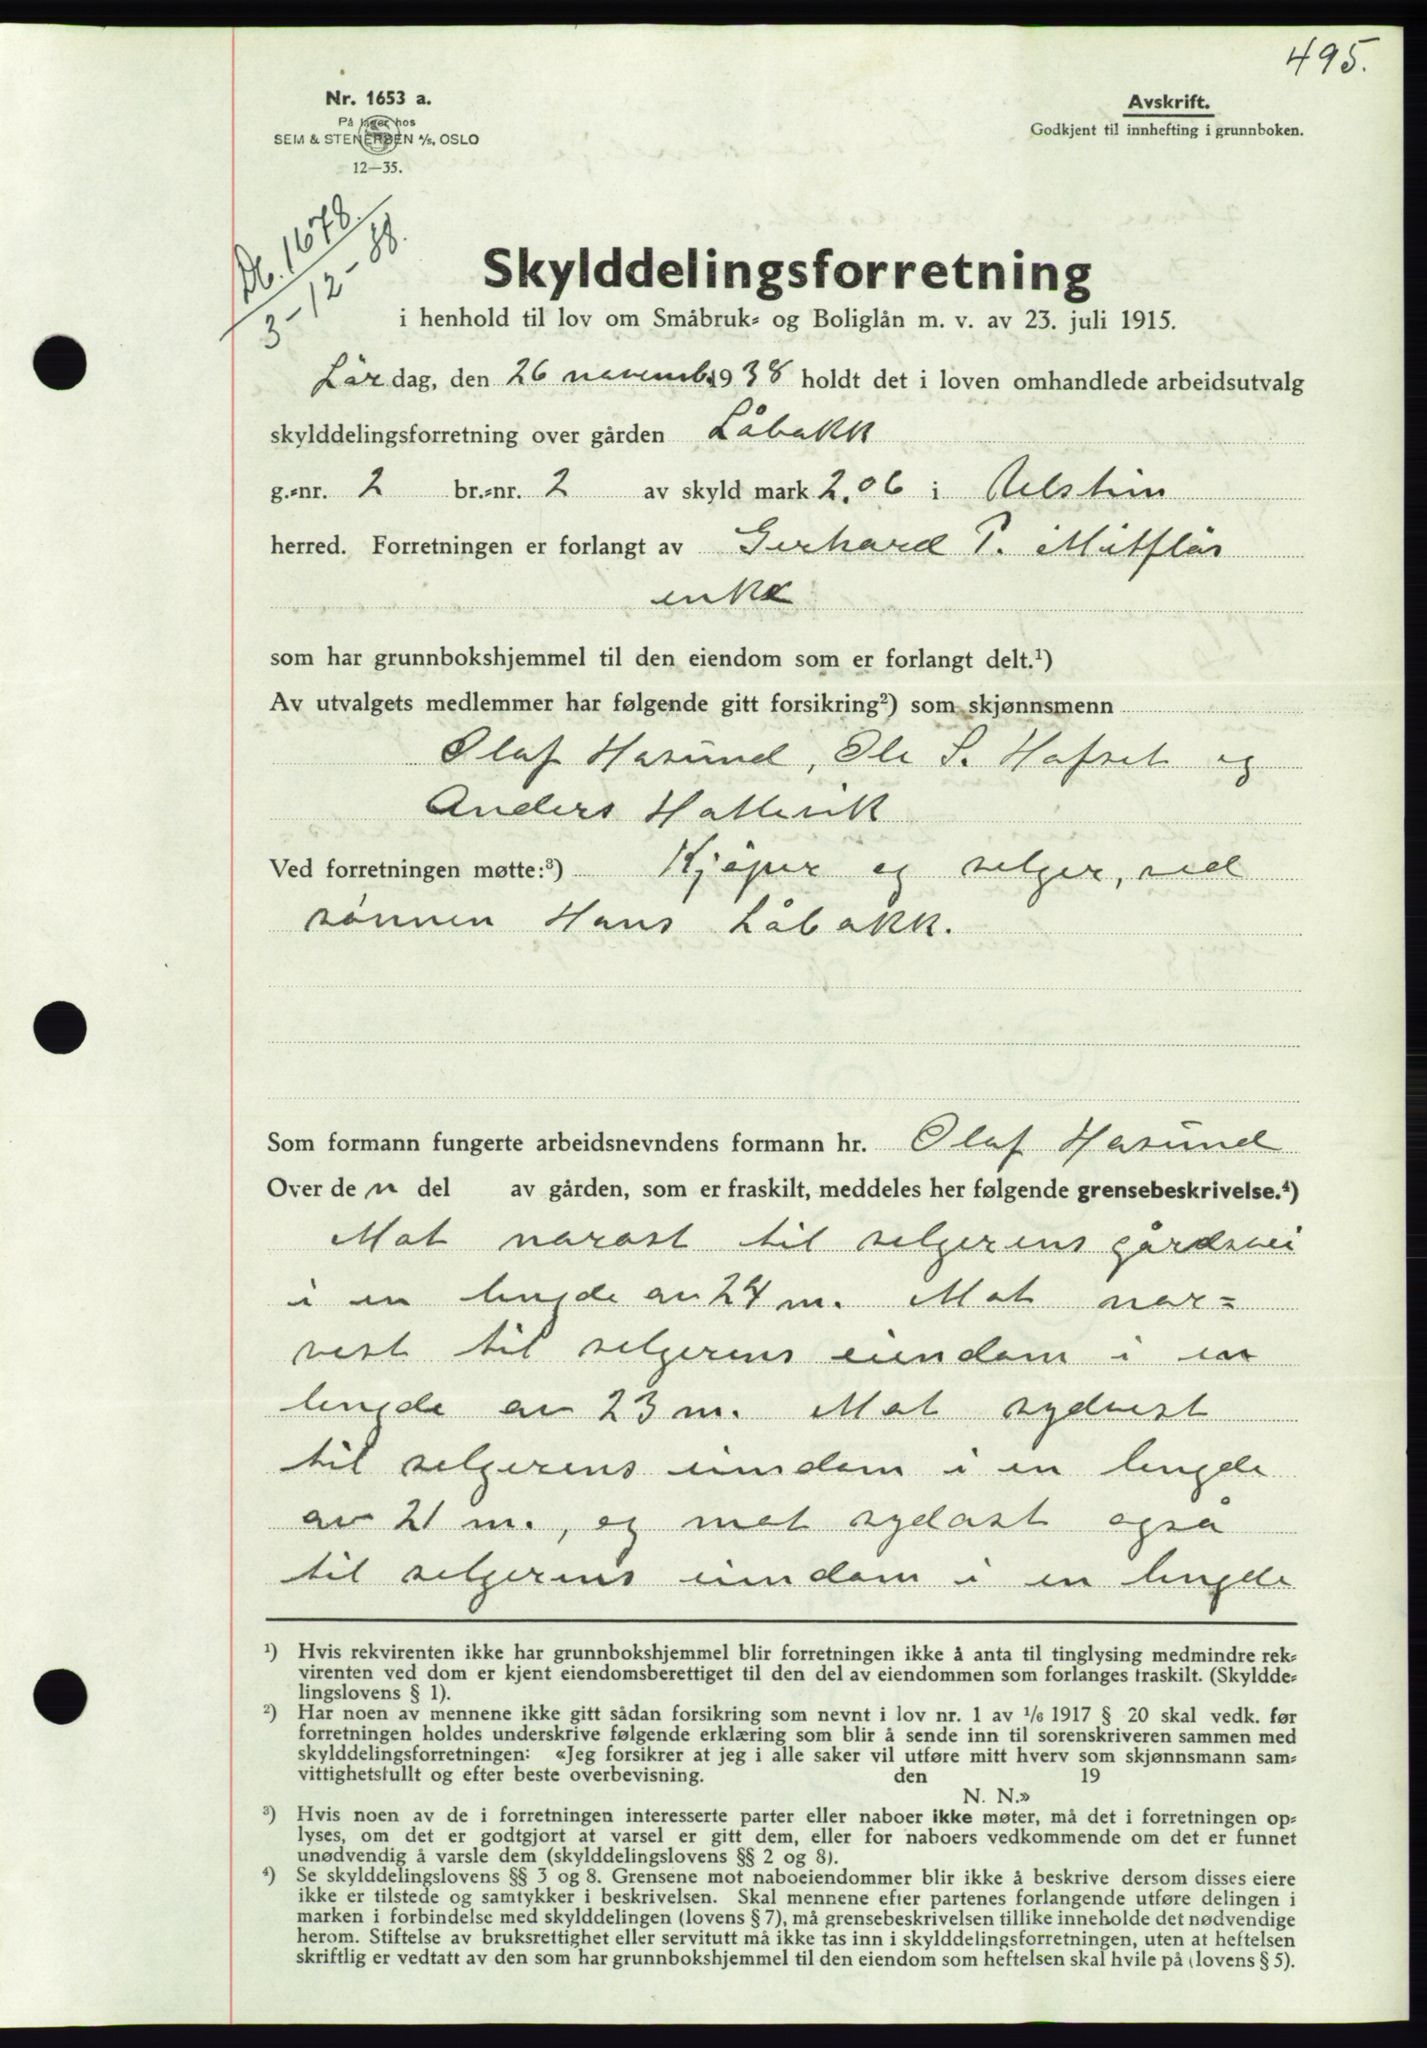 495.
Nr. 1653 a.
På lager hos
SEM & STENERSEN A/S, OSLO
12—35.
Avskrift.
Godkjent til innhefting i grunnboken.
Db. 1678
3-12-38.
Skylddelingsforretning
i henhold til lov om Småbruk- og Boliglån m. v. av 23. juli 1915.
Lördag, den 26 novemb. 1938 holdt det i loven omhandlede arbeidsutvalg
skylddelingsforretning over gården Låbakk
g.-nr. 2 br.-nr. 2 av skyld mark 2.06 i Ulstein
herred. Forretningen er forlangt av Gerhard P. Mitflår
enke
som har grunnbokshjemmel til den eiendom som er forlangt delt.¹)
Av utvalgets medlemmer har følgende gitt forsikring²) som skjønnsmenn
Olaf Hasund, Ole S. Hafset og
Anders Hatlevik
Ved forretningen møtte:³) Kjöper og selger, ved
sönnen Hans Låbakk.
Som formann fungerte arbeidsnevndens formann hr. Olaf Hasund
Over den del av gården, som er fraskilt, meddeles her følgende grensebeskrivelse.⁴)
Mot noraust til selgerens gårdsvei
i en lengde av 24 m. Mot nor=
vest til selgerens eiendom i en
lengde av 23 m. Mot sydvest
til selgerens eiendom i en lengde
av 21 m., og mot sydöst også
til selgerens eiendom i en lengde
¹) Hvis rekvirenten ikke har grunnbokshjemmel blir forretningen ikke å anta til tinglysing medmindre rek-
virenten ved dom er kjent eiendomsberettiget til den del av eiendommen som forlanges fraskilt. (Skyldde-
lingslovens § 1).
²) Har noen av mennene ikke gitt sådan forsikring som nevnt i lov nr. 1 av 1/6 1917 § 20 skal vedk. før
forretningen holdes underskrive følgende erklæring som blir å sende inn til sorenskriveren sammen med
skylddelingsforretningen: «Jeg forsikrer at jeg i alle saker vil utføre mitt hverv som skjønnsmann sam-
vittighetsfullt og efter beste overbevisning. den 19
N. N.»
³) Hvis noen av de i forretningen interesserte parter eller naboer ikke møter, må det i forretningen op-
lyses, om det er godtgjort at varsel er gitt dem, eller for naboers vedkommende om det er funnet
unødvendig å varsle dem (skylddelingslovens §§ 2 og 8).
⁴) Se skylddelingslovens §§ 3 og 8. Grensene mot naboeiendommer blir ikke å beskrive dersom disses eiere
ikke er tilstede og samtykker i beskrivelsen. Skal mennene efter partenes forlangende utføre delingen i
marken i forbindelse med skylddelingen (lovens § 7), må grensebeskrivelsen tillike inneholde det nødvendige
herom. Stiftelse av bruksrettighet eller servitutt må ikke tas inn i skylddelingsforretningen, uten at heftelsen
skriftlig er vedtatt av den som har grunnbokshjemmel til den eiendom som heftelsen skal hvile på (lovens § 5).